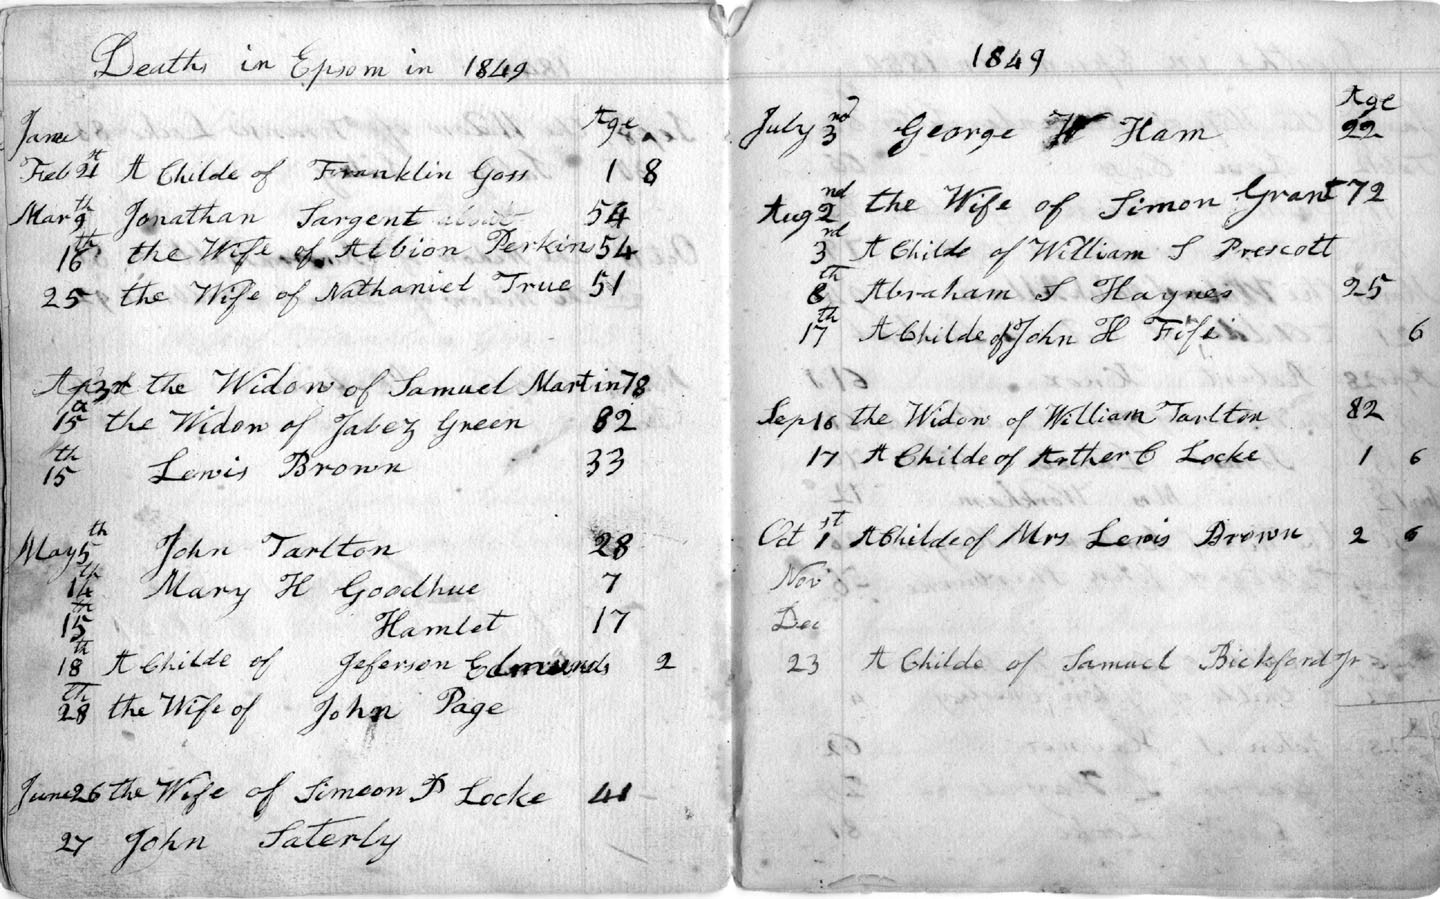 Deaths in Epsom in 1849
Age
Jane
Feb 21st A Childe of Franklin Goss 1 8
Mar 9th Jonathan Sargent about 54
18th the Wife of Albion Perkins 54
25 the Wife of Nathaniel True 51
Ap 3rd the Widow of Samuel Martin 78
15 the Widow of Jabez Green 82
15th Lewis Brown 33
May 5th John Tarlton 28
14th Mary H Goodhue 7
15th Hamlet 17
18th A Childe of Jeferson Edmunds 2
28th the Wife of John Page
June 26 the Wife of Simeon P Locke 41
27 John Saterly
1849
Age
July 3nd George W Ham 22
Aug 2nd the Wife of Simon Grant 72
3nd A Childe of William S Prescott
8th Abraham S Haynes 25
17th A Childe of John H Fife 6
Sep 16 the Widow of William Tarlton 82
17 A Childe of Arther C Locke 1 6
Oct 1st A Childe of Mrs Lewis Brown 2 6
Nov
Dec
23 A Childe of Samuel Bickford Jr